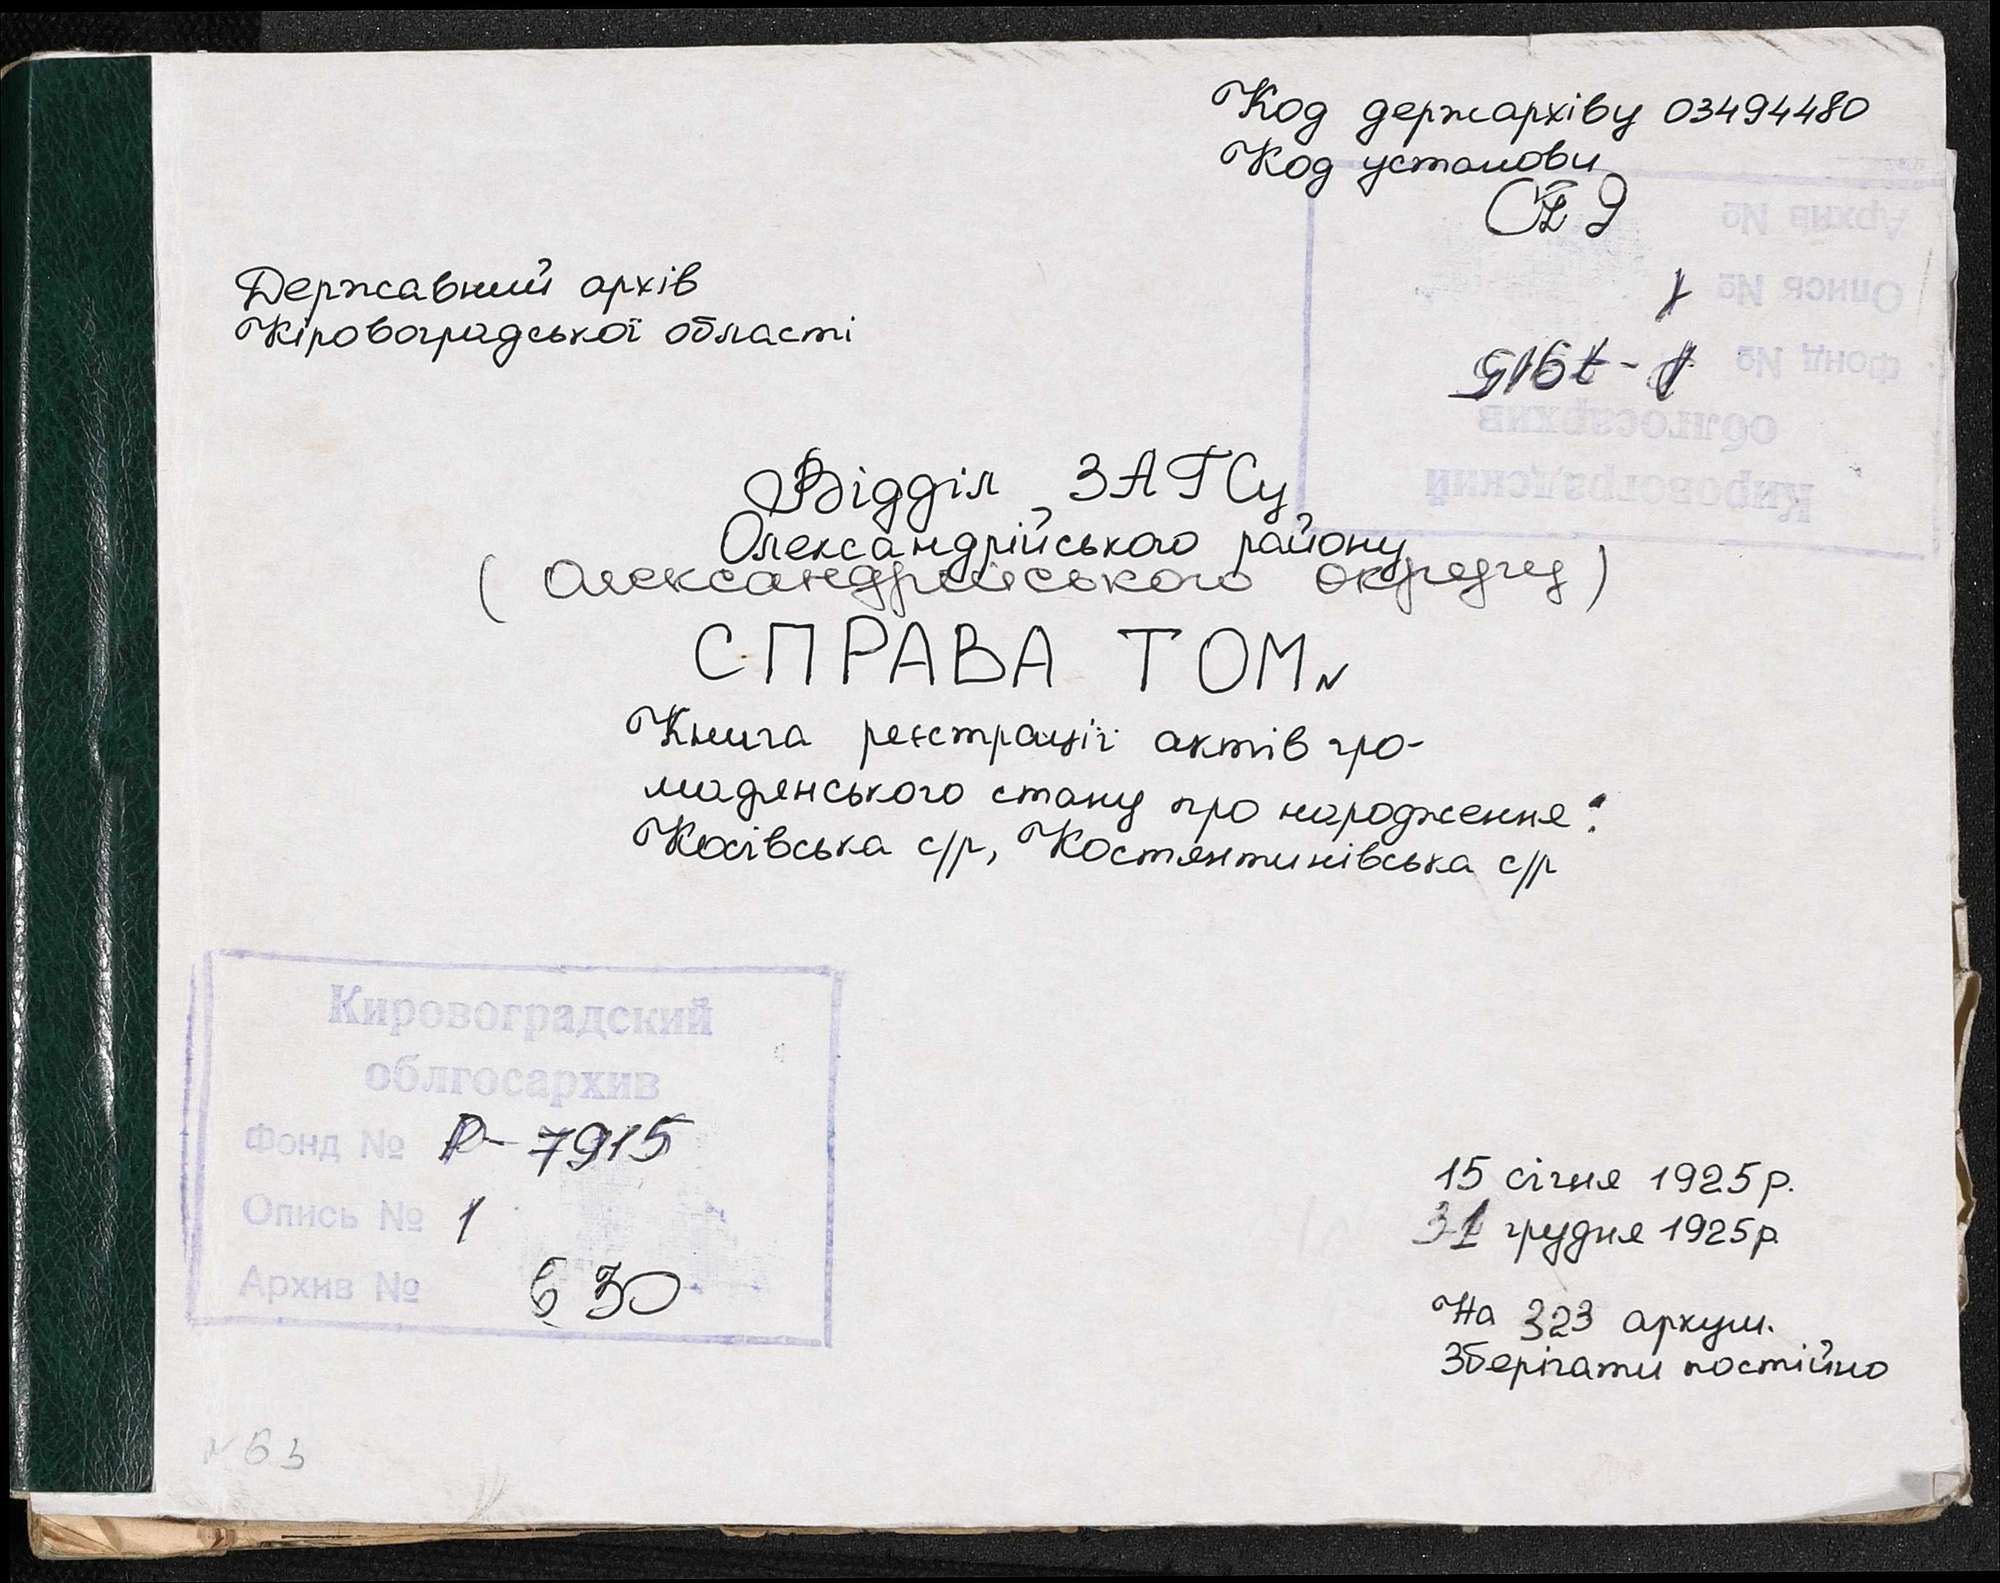 Код держархіву 03494480
Код установи
Державний архів
Кіровоградської області
Кировоградский
облгосархив
Фонд № Р-7915
Опись № 1
Архив №
Відділ ЗАГСу
Олександрійського району
(Олександрійського округу)
СПРАВА ТОМ N
Книга реєстрації актів гро-
мадянського стану про народження:
Косівська с/р, Костянтинівська с/р
Кировоградский
облгосархив
Фонд № Р-7915
Опись № 1
Архив № 630
15 січня 1925р.
31 грудня 1925р.
На 323 аркуш.
Зберігати постійно